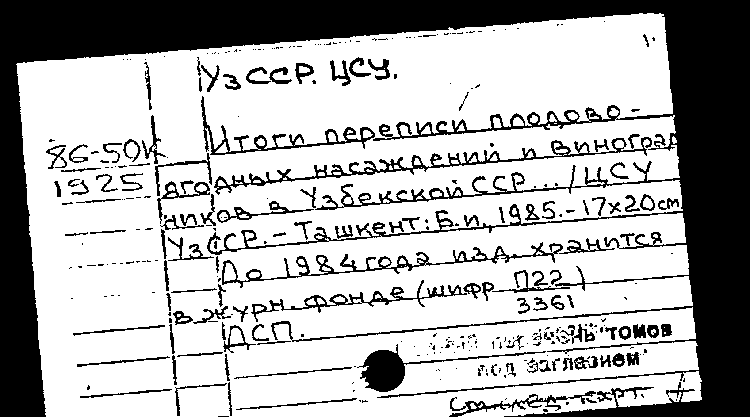 1.
УзССР. ЦСУ.
86-50К
1925
Итоги переписи плодово-
ягодных насаждений и виноград
ников в Узбекской ССР... / ЦСУ
УзССР. - Ташкент: Б.и., 1985. - 17x20cm
До 1984 года изд. хранится
в журн. фонде (шифр П22/3361)
ДСП.
томов
под заглавием
См. след. карт.